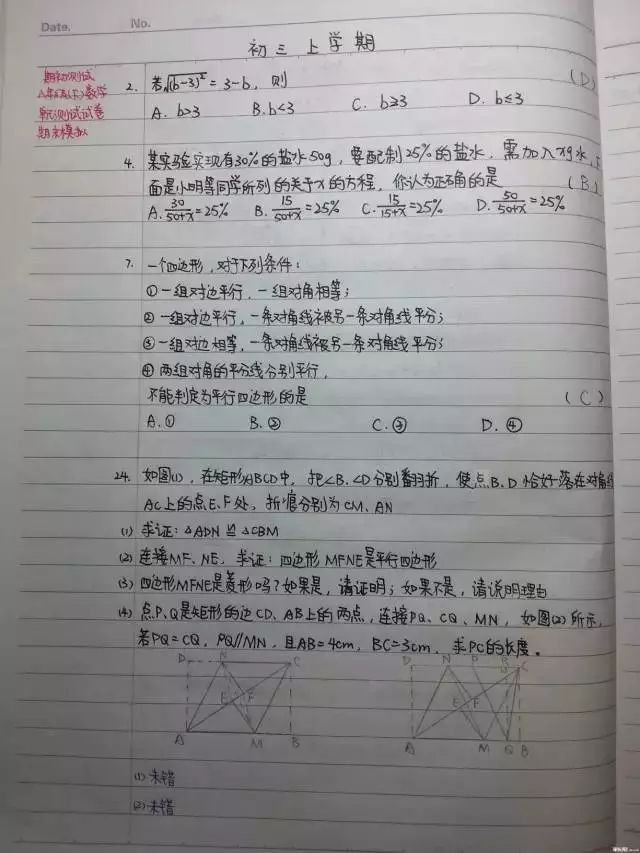 Date. No.
初三上学期
期初测试
八年级(下)数学
新测试试卷
期末模拟
2. 若√(b-3)² = 3-b, 则 (D)
A. b>3 B. b<3 C. b≥3 D. b≤3
4. 某实验室现有30%的盐水50g, 要配制25%的盐水, 需加入xg水, 下
面是小明等同学所列的关于x的方程, 你认为正确的是 (B)
A. 30/50+x=25% B. 15/50+x=25% C. 15/15+x=25% D. 50/50+x=25%
7. 一个四边形, 对于下列条件:
①一组对边平行, 一组对角相等;
②一组对边平行, 一条对角线被另一条对角线平分;
③一组对边相等, 一条对角线被另一条对角线平分;
④两组对角的平分线分别平行,
不能判定为平行四边形的是 (C)
A. ① B. ② C. ③ D. ④
24. 如图(1), 在矩形ABCD中, 把∠B、∠D分别翻折, 使点B、D恰好落在对角线
AC上的点E、F处, 折痕分别为CM、AN
(1) 求证: △ADN≌△CBM
(2) 连接MF、NE, 求证: 四边形MFNE是平行四边形
(3) 四边形MFNE是菱形吗?如果是, 请证明; 如果不是, 请说明理由
(4) 点P、Q是矩形的边CD、AB上的两点, 连接PQ、CQ、MN, 如图(2)所示,
若PQ=CQ, PQ//MN, 且AB=4cm, BC=3cm, 求PC的长度。
D N C
E F
A M B
D N P C
E F
A M Q B
(1) 未错
(2) 未错